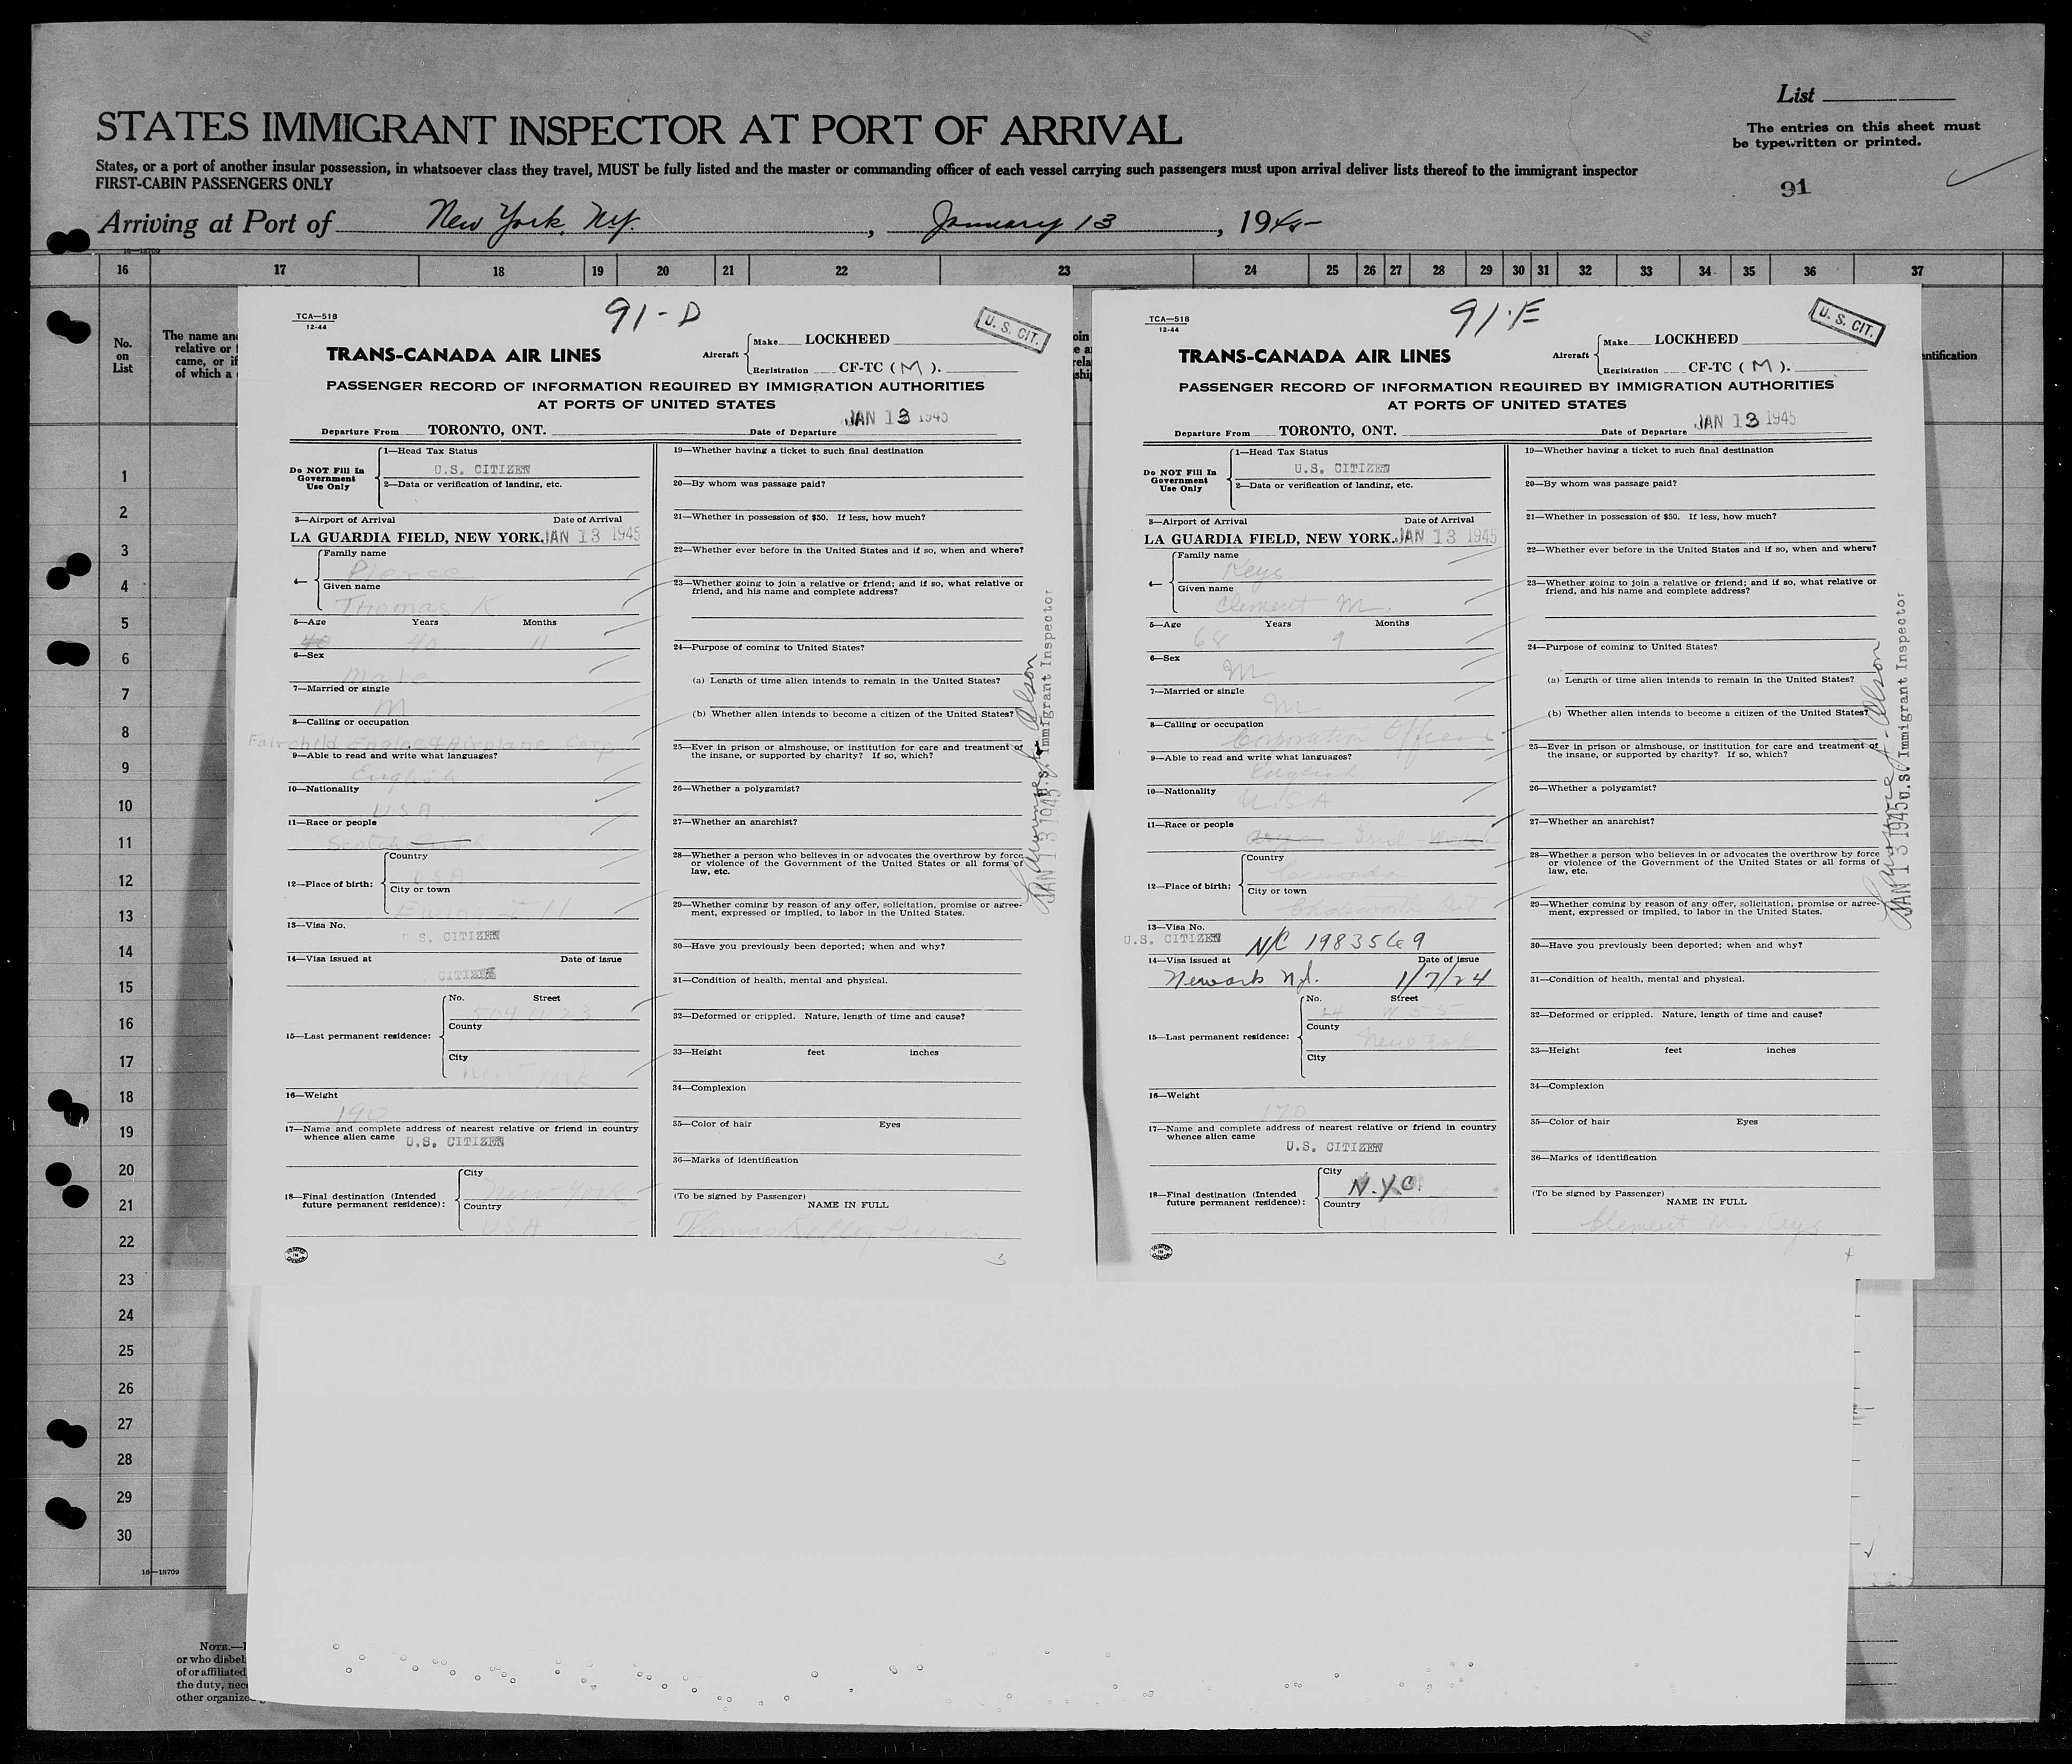 List
STATES IMMIGRANT INSPECTOR AT PORT OF ARRIVAL
The entries on this sheet must
be typewritten or printed.
States, or a port of another insular possession, in whatsoever class they travel, MUST be fully listed and the master or commanding officer of each vessel carrying such passengers must upon arrival deliver lists thereof to the immigrant inspector
FIRST-CABIN PASSENGERS ONLY
91
Arriving at Port of New York, N.Y., January 13, 1945
16—18709
16 17 18 19 20 21 22 23 24 25 26 27 28 29 30 31 32 33 34 35 36 37
No.
on
List
The name and
relative or
came, or if
of which a
1
2
3
4
5
6
7
8
9
10
11
12
13
14
15
16
17
18
19
20
21
22
23
24
25
26
27
28
29
30
16—18709
NOTE.—
or who disbel
of or affiliated
the duty, nec
other organize
TCA—518
12-44
91-D
U. S. CIT.
TRANS-CANADA AIR LINES
Aircraft
Make LOCKHEED
Registration CF-TC (M).
PASSENGER RECORD OF INFORMATION REQUIRED BY IMMIGRATION AUTHORITIES
AT PORTS OF UNITED STATES
Departure From TORONTO, ONT. Date of Departure JAN 13 1945
Do NOT Fill In
Government
Use Only
1—Head Tax Status
U.S. CITIZEN
2—Data or verification of landing, etc.
3—Airport of Arrival Date of Arrival
LA GUARDIA FIELD, NEW YORK. JAN 13 1945
4—
Family name
Pierce
Given name
Thomas K
5—Age Years Months
40 40 11
6—Sex
Male
7—Married or single
M
8—Calling or occupation
Fairchild Engine & Airplane Corp
9—Able to read and write what languages?
English
10—Nationality
USA
11—Race or people
Scotch
12—Place of birth:
Country
USA
City or town
Ewing Ill
13—Visa No.
U.S. CITIZEN
14—Visa issued at Date of issue
CITIZEN
15—Last permanent residence:
No. Street
504 W 23
County
City
New York
16—Weight
190
17—Name and complete address of nearest relative or friend in country
whence alien came U.S. CITIZEN
18—Final destination (Intended
future permanent residence):
City
New York
Country
USA
19—Whether having a ticket to such final destination
20—By whom was passage paid?
21—Whether in possession of $50. If less, how much?
22—Whether ever before in the United States and if so, when and where?
23—Whether going to join a relative or friend; and if so, what relative or
friend, and his name and complete address?
24—Purpose of coming to United States?
(a) Length of time alien intends to remain in the United States?
(b) Whether alien intends to become a citizen of the United States?
25—Ever in prison or almshouse, or institution for care and treatment of
the insane, or supported by charity? If so, which?
26—Whether a polygamist?
27—Whether an anarchist?
28—Whether a person who believes in or advocates the overthrow by force
or violence of the Government of the United States or all forms of
law, etc.
29—Whether coming by reason of any offer, solicitation, promise or agree-
ment, expressed or implied, to labor in the United States.
30—Have you previously been deported; when and why?
31—Condition of health, mental and physical.
32—Deformed or crippled. Nature, length of time and cause?
33—Height feet inches
34—Complexion
35—Color of hair Eyes
36—Marks of identification
(To be signed by Passenger)
NAME IN FULL
Thomas Kelley Pierce
3
JAN 13 1945 U.S. Immigrant Inspector
TCA—518
12-44
91-E
U. S. CIT.
TRANS-CANADA AIR LINES
Aircraft
Make LOCKHEED
Registration CF-TC (M).
PASSENGER RECORD OF INFORMATION REQUIRED BY IMMIGRATION AUTHORITIES
AT PORTS OF UNITED STATES
Departure From TORONTO, ONT. Date of Departure JAN 13 1945
Do NOT Fill In
Government
Use Only
1—Head Tax Status
U.S. CITIZEN
2—Data or verification of landing, etc.
3—Airport of Arrival Date of Arrival
LA GUARDIA FIELD, NEW YORK. JAN 13 1945
4—
Family name
Keys
Given name
Clement M.
5—Age Years Months
68 9
6—Sex
M
7—Married or single
M
8—Calling or occupation
Corporation Officer
9—Able to read and write what languages?
English
10—Nationality
U.S.A
11—Race or people
Irish
12—Place of birth:
Country
Canada
City or town
Chatsworth Ont
13—Visa No.
U.S. CITIZEN N/C 1983569
14—Visa issued at Date of issue
Newark N.J. 1/7/24
15—Last permanent residence:
No. Street
24 W 55
County
New York
City
16—Weight
170
17—Name and complete address of nearest relative or friend in country
whence alien came
U.S. CITIZEN
18—Final destination (Intended
future permanent residence):
City
N.Y.C.
Country
USA
19—Whether having a ticket to such final destination
20—By whom was passage paid?
21—Whether in possession of $50. If less, how much?
22—Whether ever before in the United States and if so, when and where?
23—Whether going to join a relative or friend; and if so, what relative or
friend, and his name and complete address?
24—Purpose of coming to United States?
(a) Length of time alien intends to remain in the United States?
(b) Whether alien intends to become a citizen of the United States?
25—Ever in prison or almshouse, or institution for care and treatment of
the insane, or supported by charity? If so, which?
26—Whether a polygamist?
27—Whether an anarchist?
28—Whether a person who believes in or advocates the overthrow by force
or violence of the Government of the United States or all forms of
law, etc.
29—Whether coming by reason of any offer, solicitation, promise or agree-
ment, expressed or implied, to labor in the United States.
30—Have you previously been deported; when and why?
31—Condition of health, mental and physical.
32—Deformed or crippled. Nature, length of time and cause?
33—Height feet inches
34—Complexion
35—Color of hair Eyes
36—Marks of identification
(To be signed by Passenger)
NAME IN FULL
Clement M. Keys
4
JAN 13 1945 U.S. Immigrant Inspector